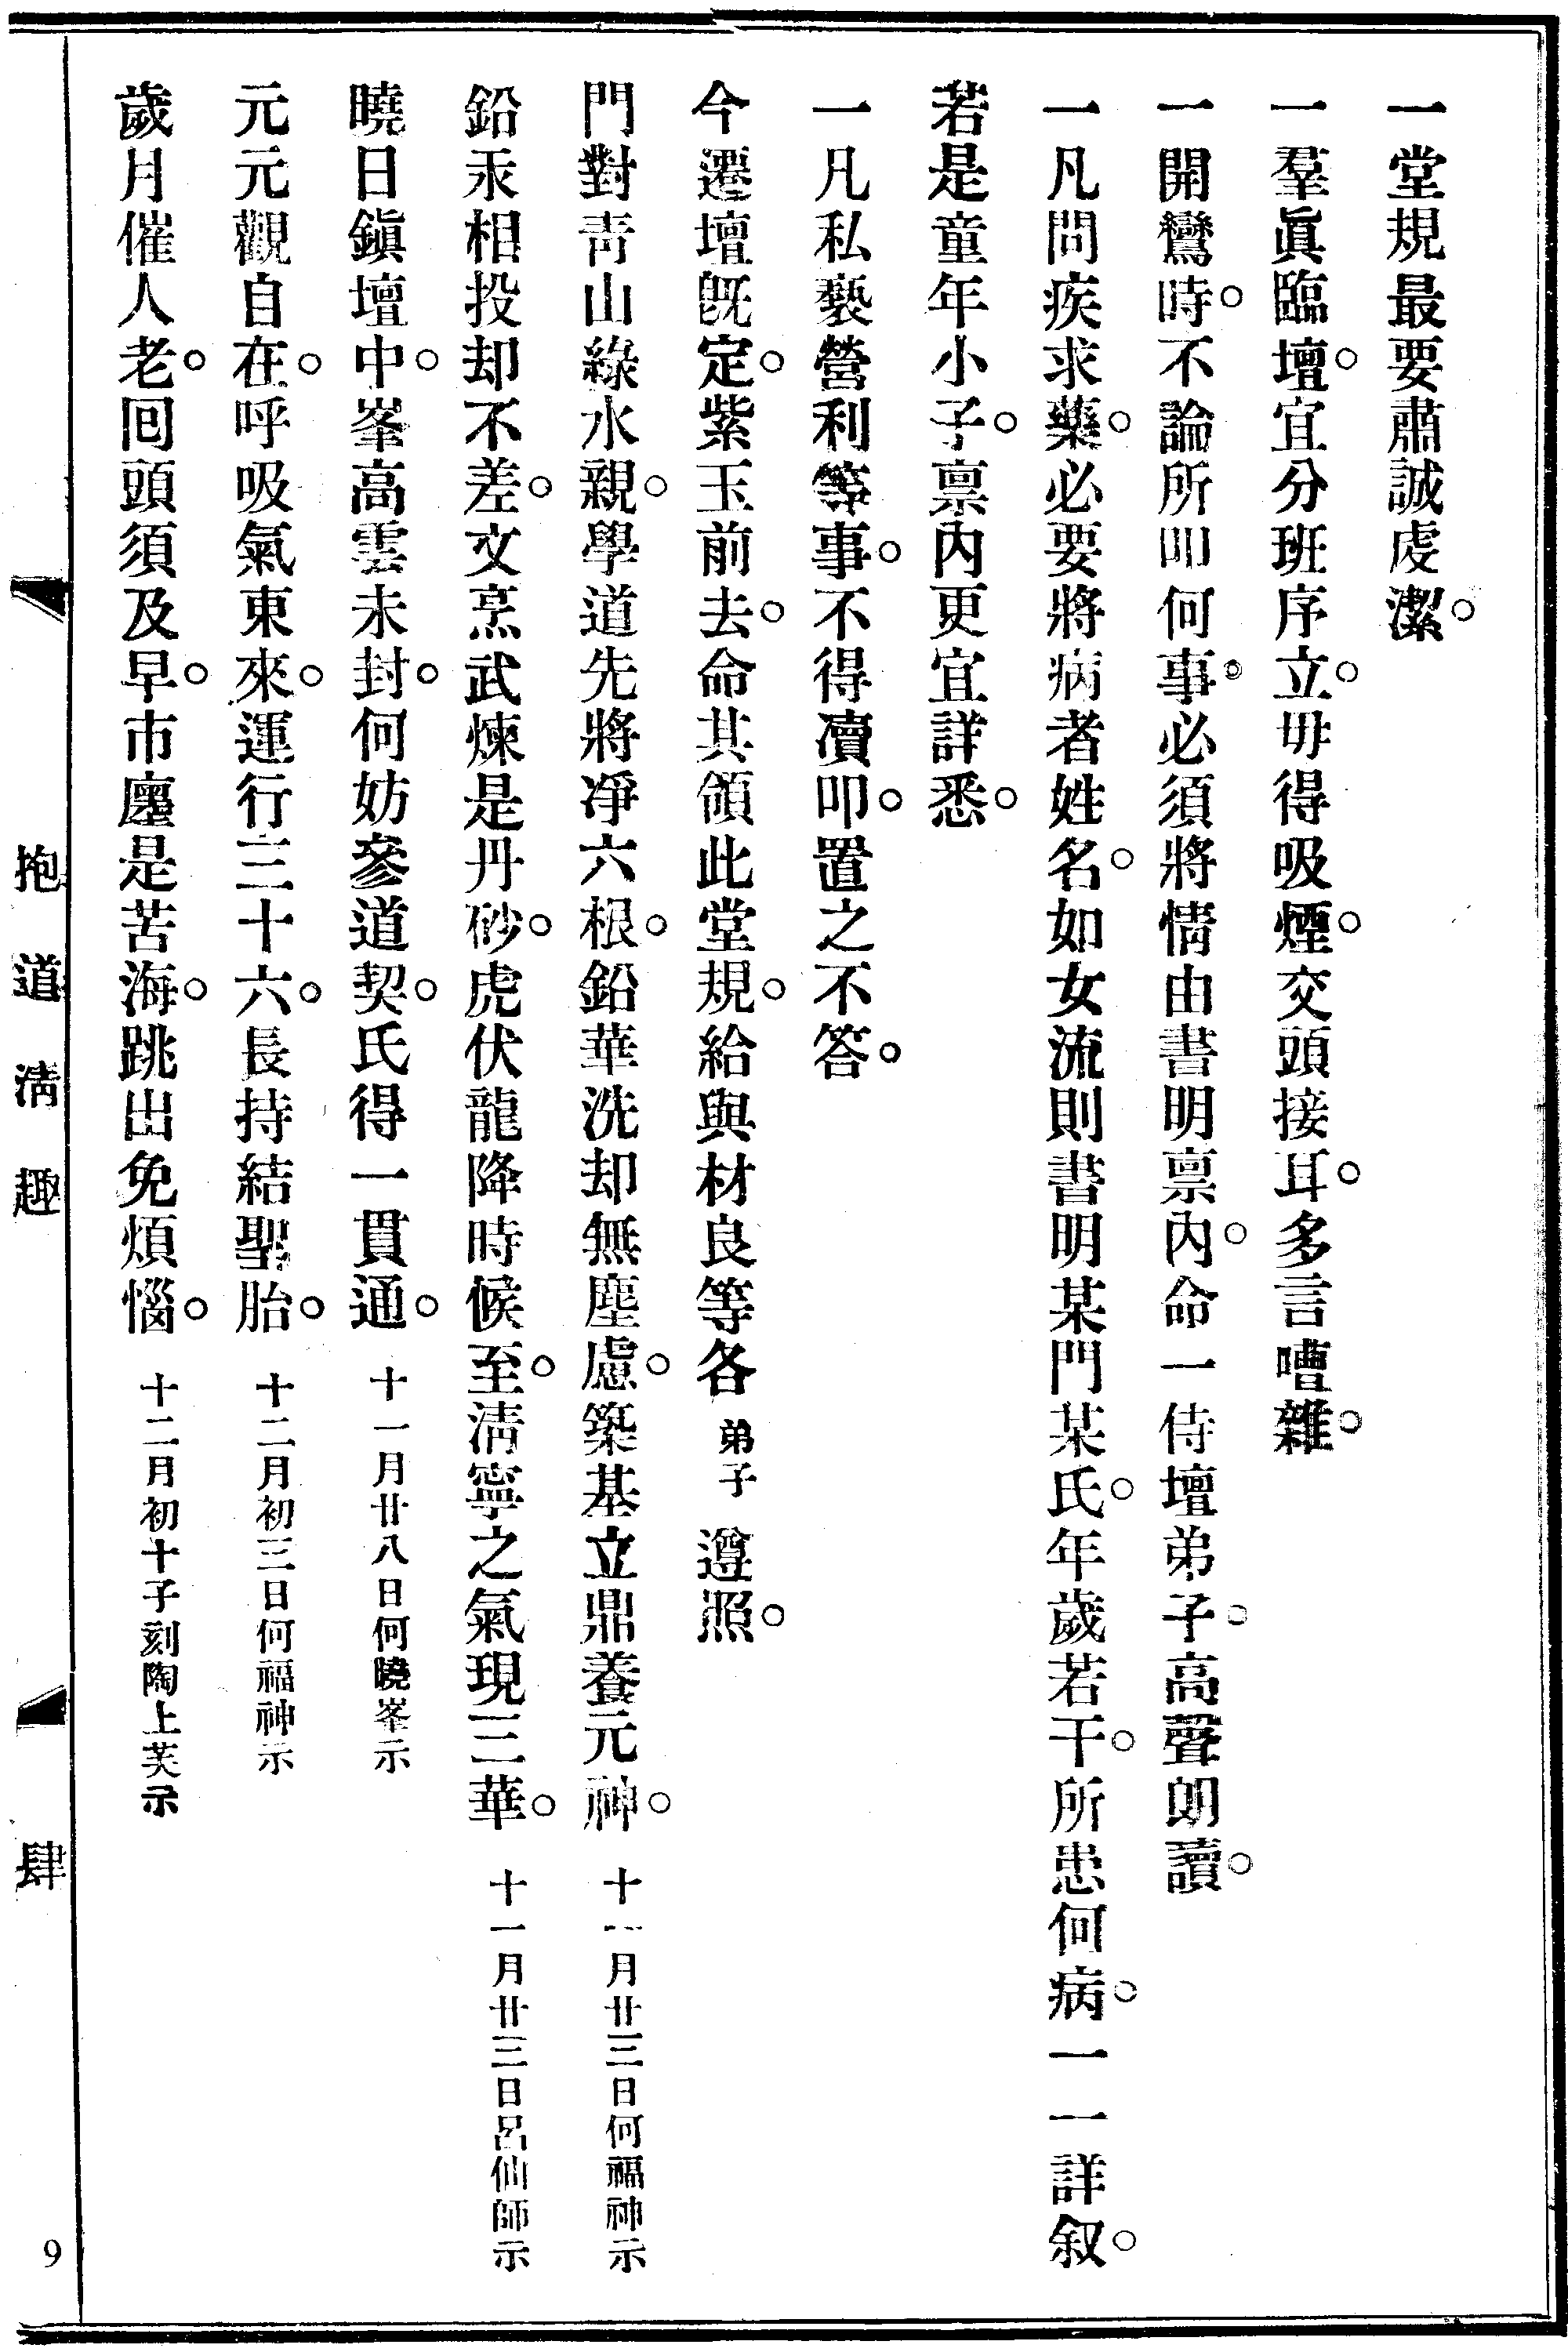 一堂規最要肅誠虔潔。
一羣眞臨壇。宜分班序立。毋得吸煙。交頭接耳。多言嘈雜。
一開鸞時。不論所叩何事。必須將情由書明禀內。命一侍壇弟子。高聲朗讀。
一凡問疾求藥。必要將病者姓名。如女流則書明某門某氏。年歲若干。所患何病。一一詳叙。
若是童年小子。禀內更宜詳悉。
一凡私褻營利等事。不得凟叩。置之不答。
今遷壇旣定。紫玉前去。命其領此堂規。給與材良等各弟子遵照。
門對靑山綠水親。學道先將凈六根。鉛華洗却無塵慮。築基立鼎養元神。十一月廿三日何福神示
鉛汞相投却不差。文烹武煉是丹砂。虎伏龍降時候至。淸寧之氣現三華。十一月廿三日呂仙師示
曉日鎭壇中。峯高雲未封。何妨參道契。氏得一貫通。十一月廿八日何曉峯示
元元觀自在。呼吸氣東來。運行三十六。長持結聖胎。十二月初三日何福神示
歲月催人老。回頭須及早。市廛是苦海。跳出免煩惱。十二月初十子刻陶上芙示
抱道淸趣
肆
9